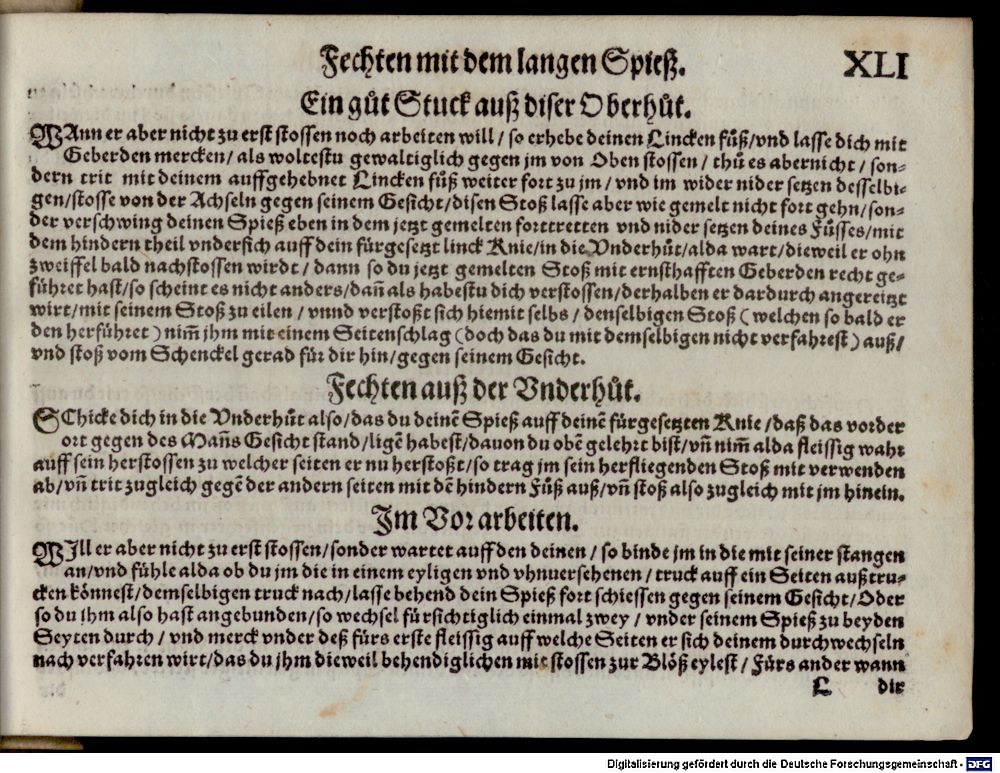 Fechten mit dem langen Spieß. XLI
Ein gůt Stuck auß diser Oberhůt.
WAnn er aber nicht zu erst stossen noch arbeiten will / so erhebe deinen Lincken fůß/vnd lasse dich mit
Geberden mercken/ als woltestu gewaltiglich gegen jm von Oben stossen / thů es abernicht / son-
dern trit mit deinem auffgehebnet Lincken fůß weiter fort zu jm / vnd im wider nider setzen desselbi-
gen/stosse von der Achseln gegen seinem Gesicht/disen Stoß lasse aber wie gemelt nicht fort gehn/son-
der verschwing deinen Spieß eben in dem jetzt gemelten forttretten vnd nider setzen deines Fůsses/mit
dem hindern theil vndersich auff dein fürgesetzt linck Knie/in die Vnderhůt/alda wart/dieweil er ohn
zweiffel bald nachstossen wirdt / dann so du jetzt gemelten Stoß mit ernsthafften Geberden recht ge-
führet hast/so scheint es nicht anders/dañ als habestu dich verstossen/derhalben er dardurch angereitzt
wirt/mit seinem Stoß zu eilen / vnnd verstoßt sich hiemit selbs / denselbigen Stoß (welchen so bald er
den herführet) nim̃ jhm mit einem Seitenschlag (doch das du mit demselbigen nicht verfahrest) auß/
vnd stoß vom Schenckel gerad für dir hin/gegen seinem Gesicht.
Fechten auß der Vnderhůt.
SChicke dich in die Vnderhůt also/das du deinẽ Spieß auff deinẽ fürgesetzten Knie / daß das vorder
ort gegen des Mañs Gesicht stand/ligẽ habest/dauon du obẽ gelehrt bist/vñ nim̃ alda fleissig wahr
auff sein herstossen zu welcher seiten er nu herstoßt/so trag jm sein herfliegenden Stoß mit verwenden
ab/vñ trit zugleich gegẽ der andern seiten mit dẽ hindern Fůß auß/vñ stoß also zugleich mit jm hinein.
Im Vor arbeiten.
WIll er aber nicht zu erst stossen/sonder wartet auff den deinen / so binde jm in die mit seiner stangen
an/vnd fühle alda ob du jm die in einem eyligen vnd vhnuersehenen / truck auff ein Seiten außtru-
cken könnest/demselbigen truck nach/lasse behend dein Spieß fort schiessen gegen seinem Gesicht/Oder
so du jhm also hast angebunden/so wechsel fürsichtiglich einmal zwey / vnder seinem Spieß zu beyden
Seyten durch / vnd merck vnder deß fürs erste fleissig auff welche Seiten er sich deinem durchwechseln
nach verfahren wirt/das du jhm dieweil behendiglichen mit stossen zur Blöß eylest / Fürs ander wann
L dir
Digitalisierung gefördert durch die Deutsche Forschungsgemeinschaft - DFG